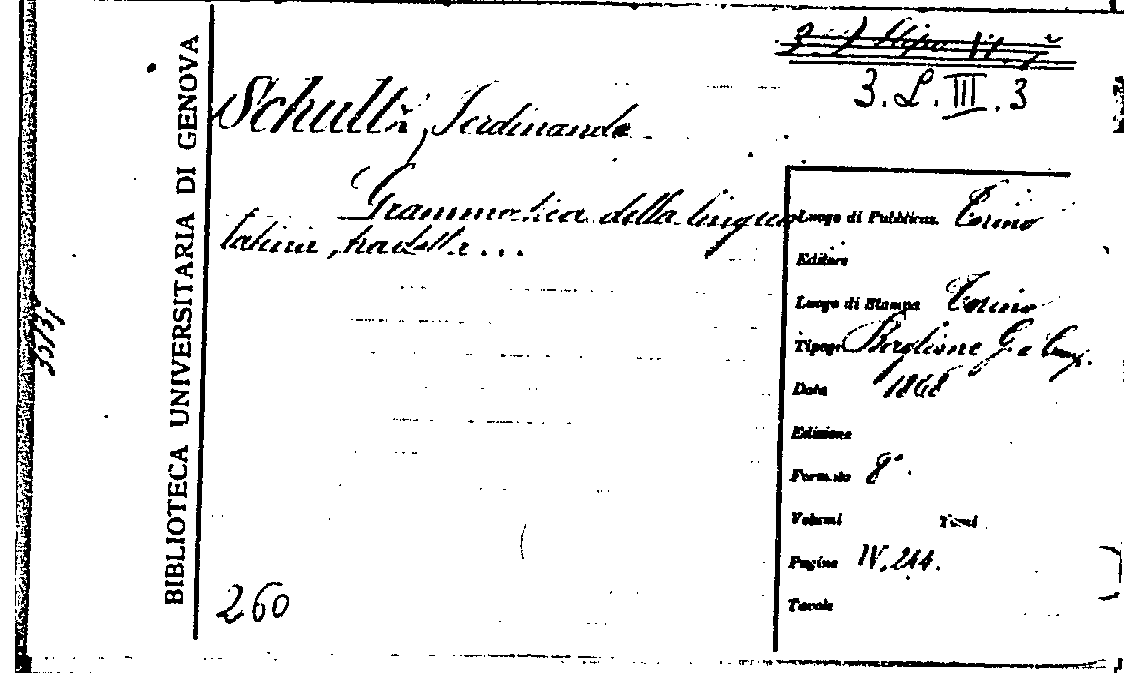 3. L. III. 3
BIBLIOTECA UNIVERSITARIA DI GENOVA
Schultz, Ferdinando
Grammatica della lingua
latina, tradotta...
Luogo di Pubblicaz. Torino
Editore
Luogo di Stampa Torino
Tipogr. Borglione G. e Comp.
Data 1868
Edizione
Formato 8°.
Volumi Tomi
Pagine IV, 244.
Tavole
260